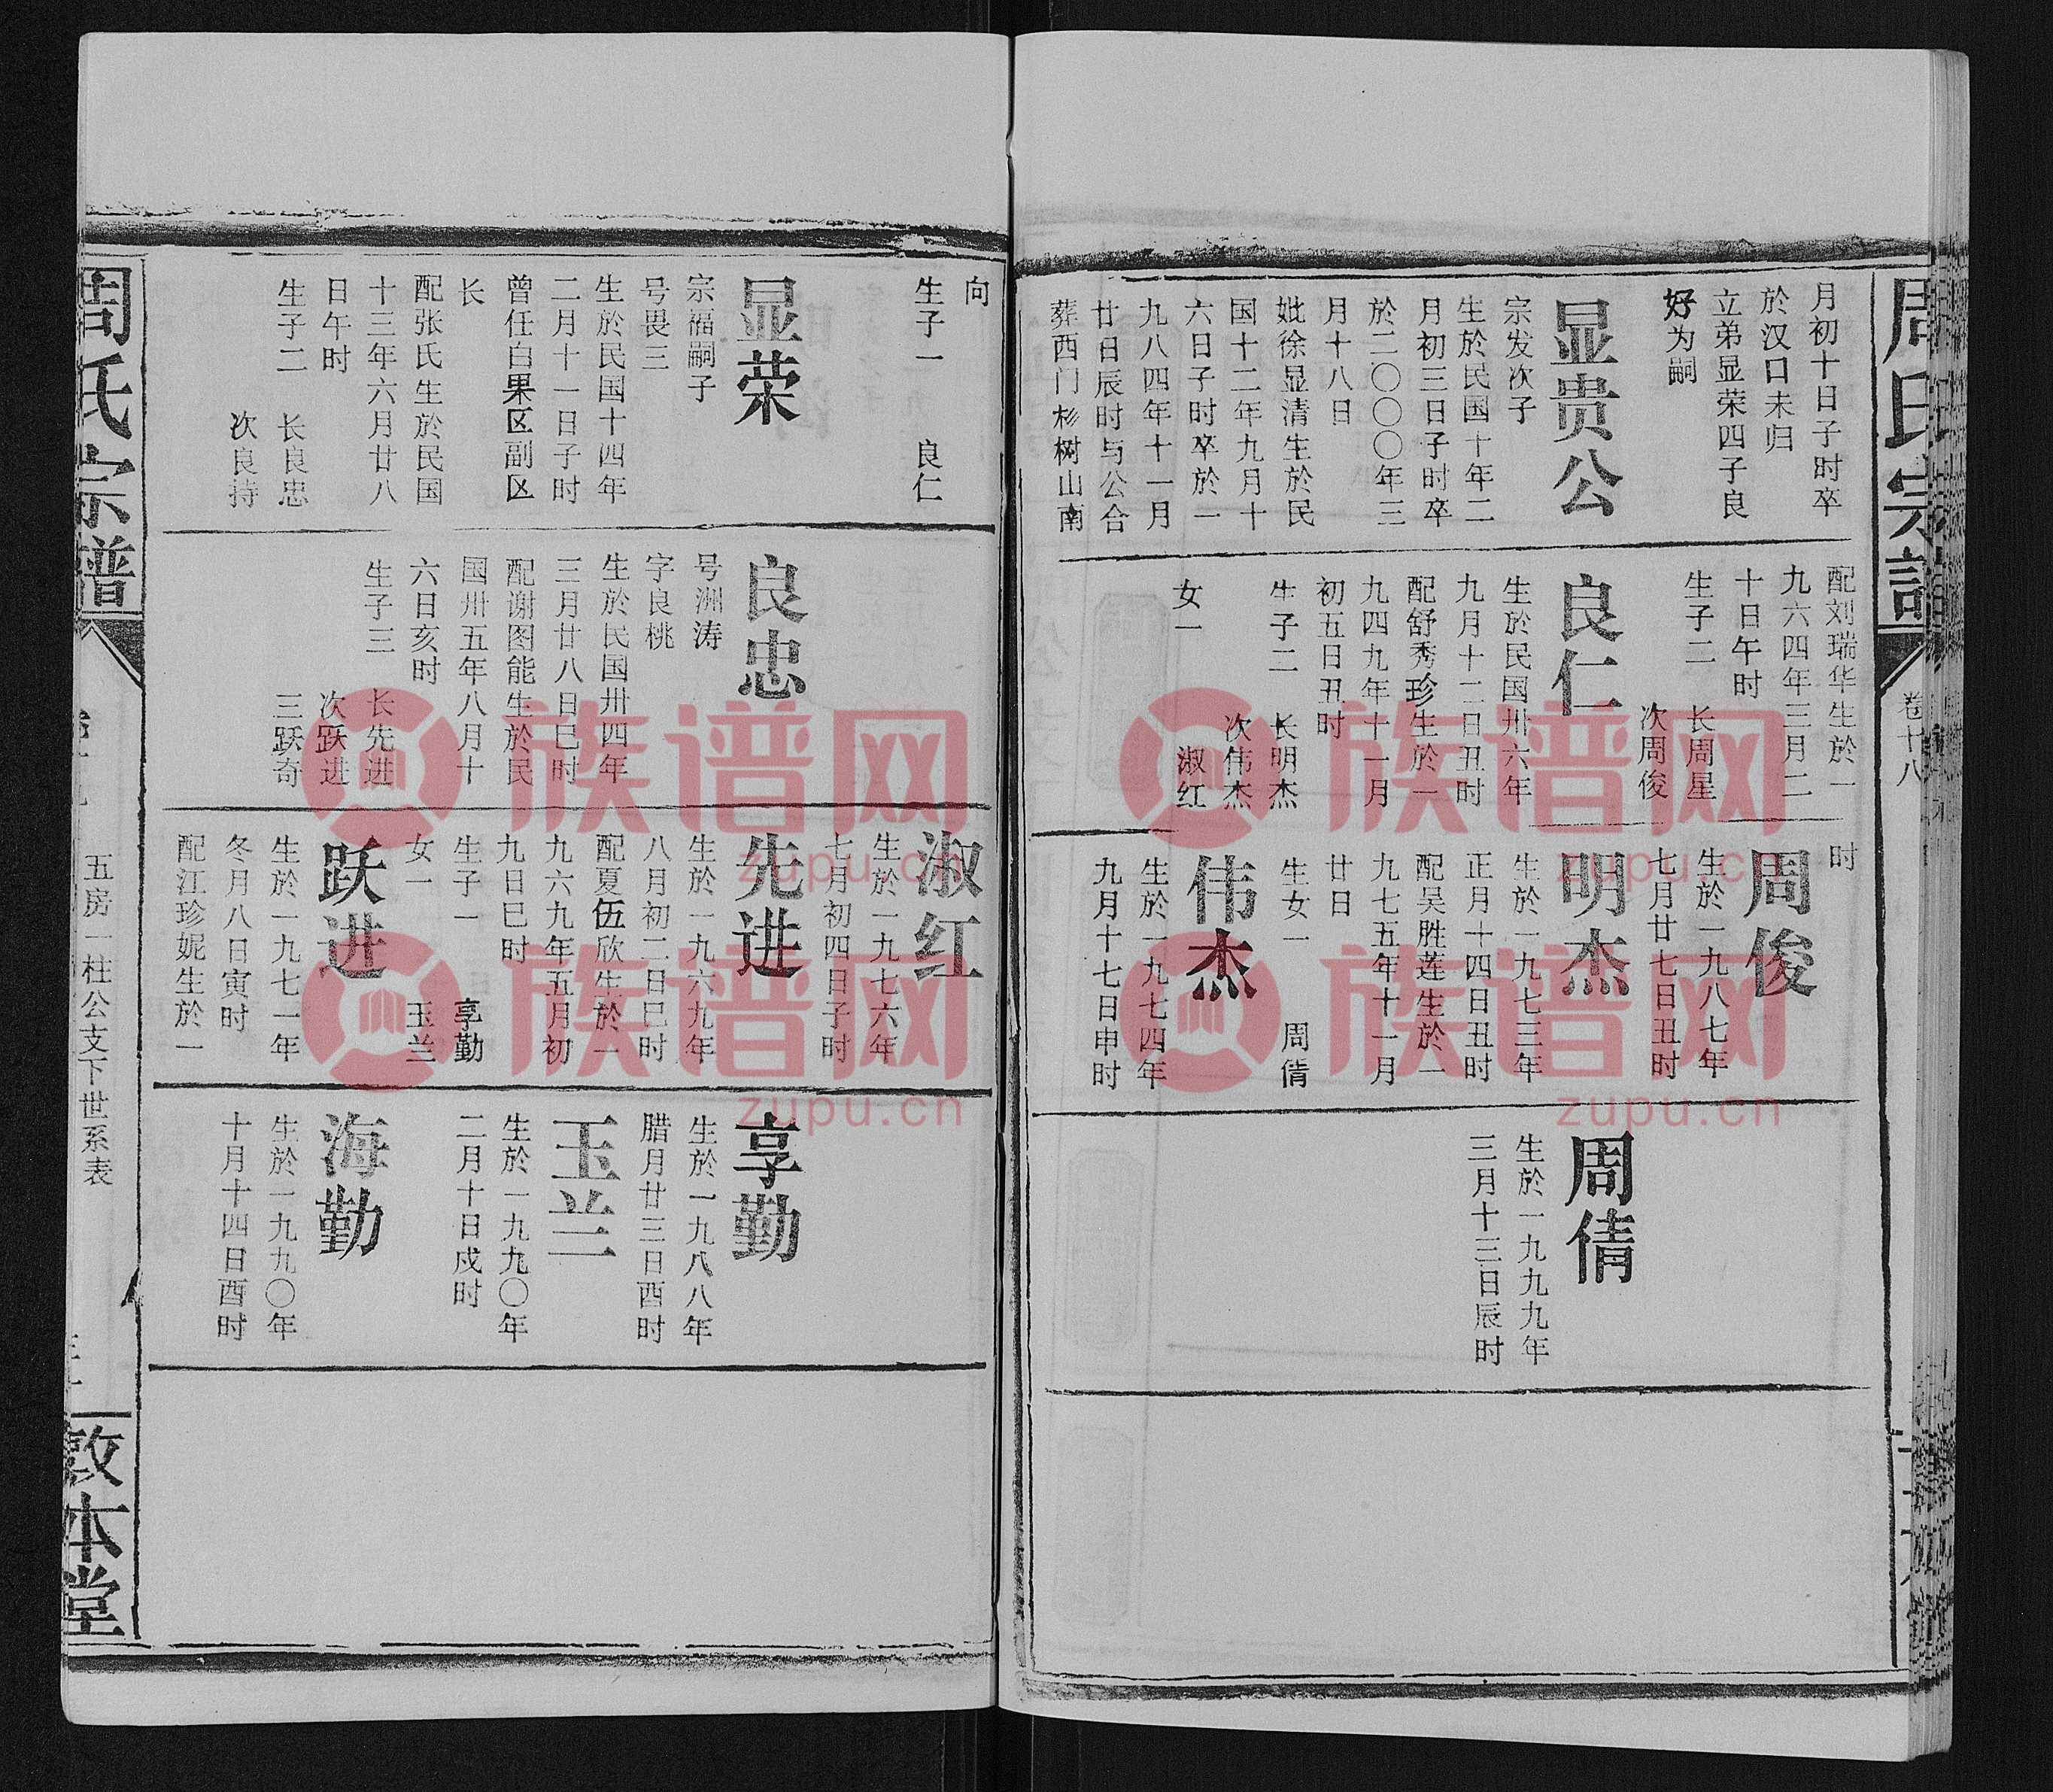 周氏宗譜
卷十八
月初十日子时卒
於汉口未归
立弟显荣四子良
好为嗣
显贵公
宗发次子
生於民国十年二
月初三日子时卒
於二〇〇〇年三
月十八日
妣徐显清生於民
国十二年九月十
六日子时卒於一
九八四年十一月
廿日辰时与公合
葬西门杉树山南
配刘瑞华生於一
九六四年三月二
十日午时
生子二 长周星
次周俊
良仁
生於民国卅六年
九月十二日丑时
配舒秀珍生於一
九四九年十一月
初五日丑时
生子二 长明杰
次伟杰
女一 淑红
时
周俊
生於一九八七年
七月廿七日丑时
明杰
生於一九七三年
正月十四日丑时
配吴胜莲生於一
九七五年十一月
廿日
生女一 周倩
伟杰
生於一九七四年
九月十七日申时
周倩
生於一九九九年
三月十三日辰时
向
生子一 良仁
显荣
宗福嗣子
号畏三
生於民国十四年
二月十一日子时
曾任白果区副区
长
配张氏生於民国
十三年六月廿八
日午时
生子二 长良忠
次良持
良忠
号洲涛
字良桃
生於民国卅四年
三月廿八日巳时
配谢图能生於民
国卅五年八月十
六日亥时
生子三 长先进
次跃进
三跃奇
淑红
生於一九七六年
七月初四日子时
先进
生於一九六九年
八月初二日巳时
配夏伍欣生於一
九六九年五月初
九日巳时
生子一 享勤
女一 玉兰
跃进
生於一九七一年
冬月八日寅时
配江珍妮生於一
享勤
生於一九八八年
腊月廿三日酉时
玉兰
生於一九九〇年
二月十日戌时
海勤
生於一九九〇年
十月十四日酉时
周氏宗譜
五房一柱公支下世系表
敦本堂
族谱网
zupu.cn
族谱网
zupu.cn
族谱网
zupu.cn
族谱网
zupu.cn